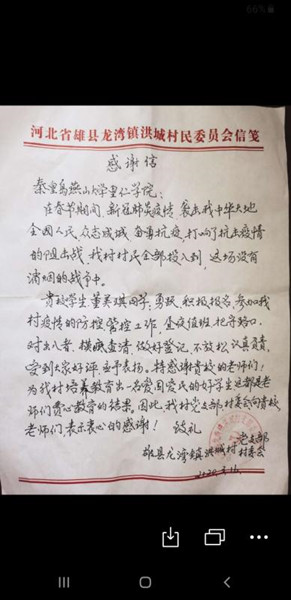 66%
河北省雄县龙湾镇洪城村民委员会信笺
感谢信
秦皇岛燕山大学里仁学院：
在春节期间，新冠肺炎疫情，袭击我中华大地
全国人民，众志成城，奋勇抗疫，打响了抗击疫情
的阻击战，我村村民全部投入到，这场没有
消烟的战斗中。
贵校学生董美琪同学，勇跃，积极报名，参加我
村疫情的防控，管控工作，昼夜值班，把守路口，
对出入者，查清，做好登记，不放松，认真负责，
受到大家好评，应予表扬。特感谢贵校的老师们：
为我村培养教育出一名爱国爱民的好学生这都是老
师们费心教育的结果。因此，我村党支部，村委会向贵校，
老师们，表示衷心的感谢！ 致礼
党支部
雄县龙湾镇洪城村 村委会